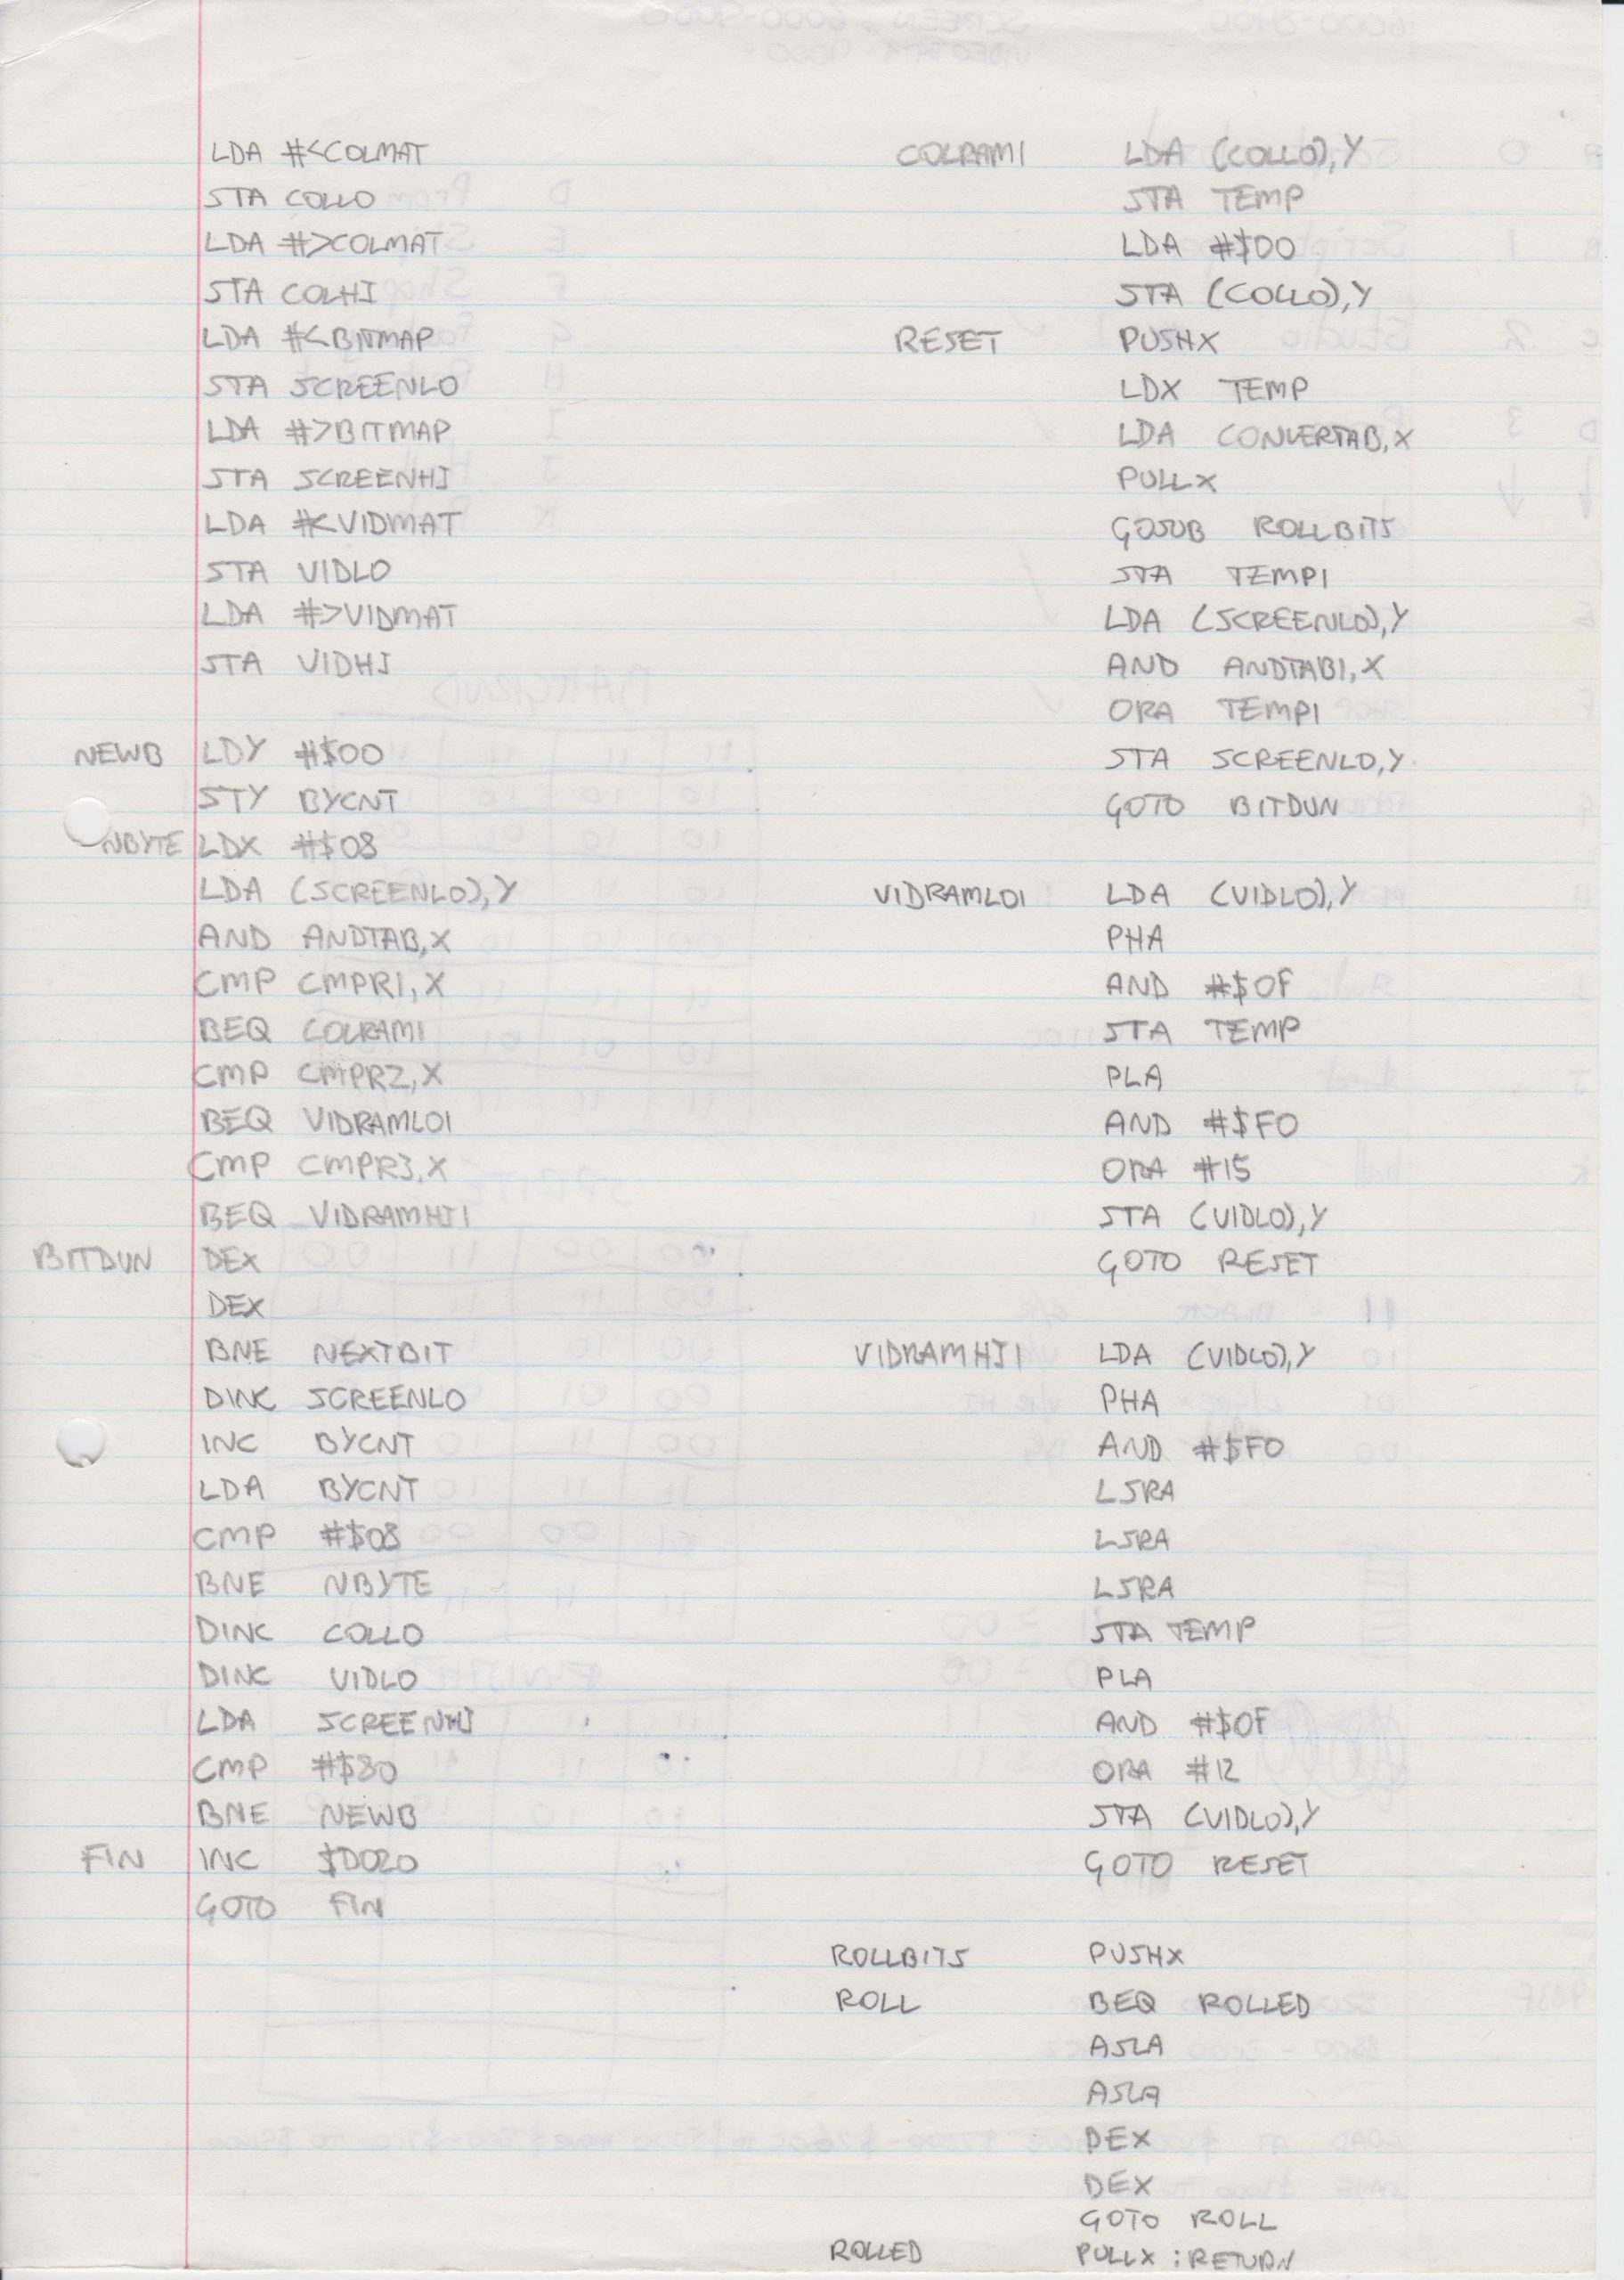 LDA #<COLMAT
STA COLLO
LDA #>COLMAT
STA COLHI
LDA #<BITMAP
STA SCREENLO
LDA #>BITMAP
STA SCREENHI
LDA #<VIDMAT
STA VIDLO
LDA #>VIDMAT
STA VIDHI
NEWB LDY #$00
STY BYCNT
NBYTE LDX #$08
LDA (SCREENLO),Y
AND ANDTAB,X
CMP CMPR1,X
BEQ COLRAM1
CMP CMPR2,X
BEQ VIDRAMLO1
CMP CMPR3,X
BEQ VIDRAMHI1
BITDUN DEX
DEX
BNE NEXTBIT
DINC SCREENLO
INC BYCNT
LDA BYCNT
CMP #$08
BNE NBYTE
DINC COLLO
DINC VIDLO
LDA SCREENHI
CMP #$80
BNE NEWB
FIN INC $D020
GOTO FIN
COLRAM1 LDA (COLLO),Y
STA TEMP
LDA #$00
STA (COLLO),Y
RESET PUSHX
LDX TEMP
LDA CONVERTAB,X
PULLX
GOSUB ROLLBITS
STA TEMP1
LDA (SCREENLO),Y
AND ANDTAB1,X
ORA TEMP1
STA SCREENLO,Y
GOTO BITDUN
VIDRAMLO1 LDA (VIDLO),Y
PHA
AND #$0F
STA TEMP
PLA
AND #$F0
ORA #15
STA (VIDLO),Y
GOTO RESET
VIDRAMHI1 LDA (VIDLO),Y
PHA
AND #$F0
LSRA
LSRA
LSRA
STA TEMP
PLA
AND #$0F
ORA #12
STA (VIDLO),Y
GOTO RESET
ROLLBITS PUSHX
ROLL BEQ ROLLED
ASLA
ASLA
DEX
DEX
GOTO ROLL
ROLLED PULLX : RETURN